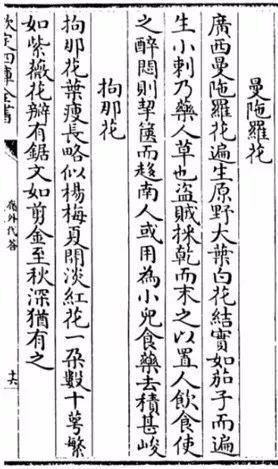 曼陁羅花
廣西曼陁羅花遍生原野大葉白花結實如茄子而遍
生小刺乃藥人草也盗賊採乾而末之以置人飲食使
之醉悶則挈篋而趍南人或用為小兒食藥去積甚峻
拘那花
拘那花葉瘦長略似楊梅夏開淡紅花一朶數十萼繁
如紫薇花瓣有鋸文如剪金至秋深猶有之
欽定四庫全書
嶺外代答